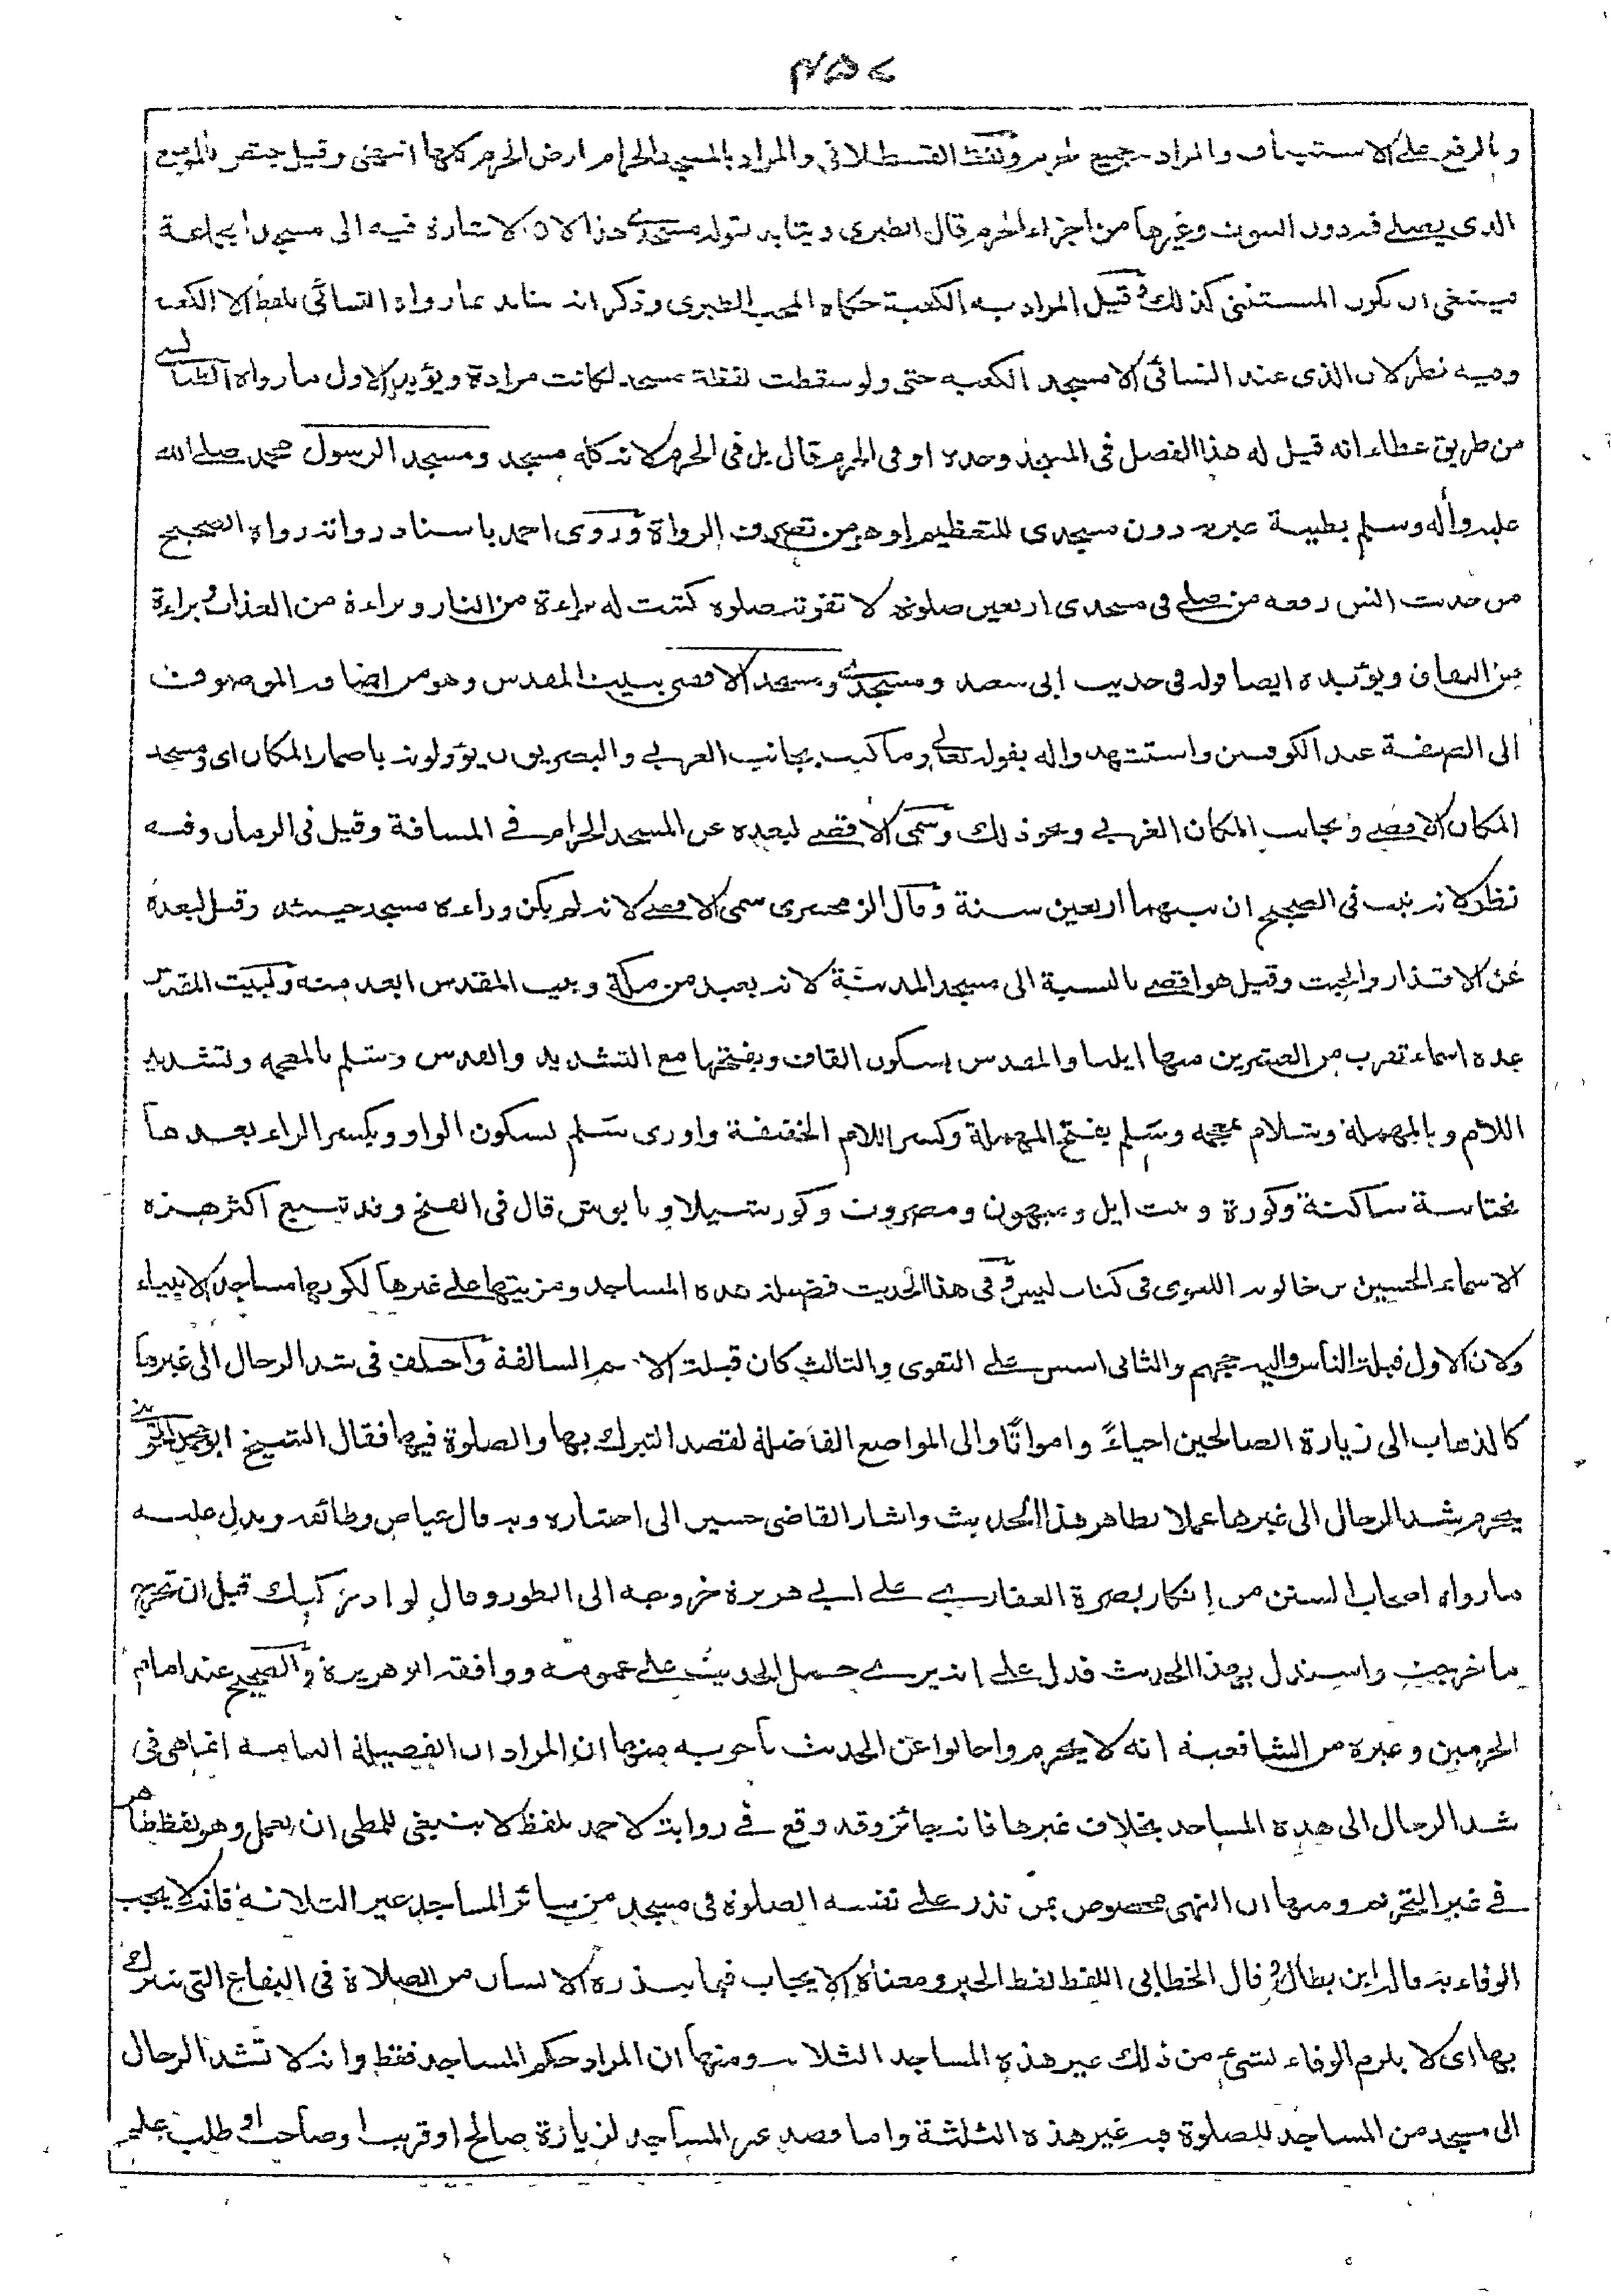 ۴۵۷
وبالرفع على الاستيناف والمراد جميع الحرم ولفظ القسطلاني والمراد بالمسجد الحرام ارض الحرم كلها انتهى وقيل يختص بالموضع
الذي يصلى فيه دون البيوت وغيرها من اجزاء الحرم قال الطبري ويتايد بقوله مسجدي هذا لان الاشارة فيه الى مسجد الجماعة
فينبغي ان يكون المستثنى كذلك وقيل المراد به الكعبة حكاه المحب الطبري وذكر انه يتايد بما رواه النسائي بلفظ الا الكعبه
وفيه نظر لان الذي عند النسائي الا مسجد الكعبه حتى ولو سقطت لفظة مسجد لكانت مرادة ويؤيد الاول ما رواه الطيالسي
من طريق عطاء انه قيل له هذا الفضل في المسجد وحده او في الحرم قال بل في الحرم لانه كله مسجد ومسجد الرسول محمد صلى الله
عليه وأله وسلم بطيبة عبر به دون مسجدى للتعظيم او هو من تصرف الرواة وروى احمد باسناد رواته رواة الصحيح
من حديث انس رفعه من صلى في مسجدى اربعين صلوة لا تفوته صلوه كتبت له براءة من النار وبراءة من العذاب وبراءة
من النفاق ويؤيده ايضا قوله في حديث ابى سعيد ومسجدي ومسجد الاقصى ببيت المقدس وهو من اضافة الموصوف
الى الصفة عند الكوفيين واستشهدوا له بقوله تعالى وما كنت بجانب الغربي والبصريون يؤولونه باضمار المكان اى ومسجد
المكان الاقصى وبجانب المكان الغربي ونحو ذلك وسمى الاقصى لبعده عن المسجد الحرام في المسافة وقيل في الزمان وفيه
نظر لانه ثبت في الصحيح ان بينهما اربعين سنة وقال الزمخشرى سمى الاقصى لانه لم يكن وراءه مسجد حينئذ وقيل لبعده
عن الاقذار والخبث وقيل هو اقصى بالنسبة الى مسجد المدينة لانه بعيد من مكة وبيت المقدس ابعد منه ولبيت المقدس
عده اسماء تقرب من العشرين منها ايليا والمقدس بسكون القاف وبفتحها مع التشديد والقدس وشلم بالمعجمه وتشديد
اللام وبالمهملة وشلام بمعجمه وسلم بفتح المهملة وكسر اللام الخفيفة واورى سلم بسكون الواو وبكسر الراء بعدها
تحتانية ساكنة وكورة وبيت ايل وصهيون ومصروث وكورشيلا وبابوش قال في الفتح وقد تتبع اكثر هذه
الاسماء الحسين بن خالويه اللغوى في كتاب ليس وفي هذا الحديث فضيلة هذه المساجد ومزيتها على غيرها لكونها مساجد الانبياء
ولان الاول قبلة الناس واليه حجهم والثانى اسس على التقوى والثالث كان قبلة الامم السالفة واختلف في شد الرحال الى غيرها
كالذهاب الى زيارة الصالحين احياءً وامواتًا والى المواضع الفاضلة لقصد التبرك بها والصلوة فيها فقال الشيخ ابو محمد الجويني
يحرم شد الرحال الى غيرها عملا بظاهر هذا الحديث واشار القاضى حسين الى اختياره وبه قال عياض وطائفه ويدل عليه
ما رواه اصحاب السنن من انكار بصرة الغفاري على ابي هريرة خروجه الى الطور وقال لو ادركتك قبل ان تخرج
ما خرجت واستدل بهذا الحديث فدل على انه يرى حمل الحديث على عمومه ووافقه ابو هريرة والصحيح عند امام
الحرمين وغيره من الشافعية انه لا يحرم واجابوا عن الحديث باجوبه منها ان المراد ان الفضيلة التامه انما هى في
شد الرحال الى هذه المساجد بخلاف غيرها فانه جائز وقد وقع في رواية لاحمد بلفظ لا ينبغى للمطى ان تعمل وهو لفظ ظاهر
في غير التحريم ومنها ان النهى مخصوص بمن نذر على نفسه الصلوة في مسجد من سائر المساجد غير الثلاثة فانه لا يجب
الوفاء به قاله ابن بطال وقال الخطابى اللفظ لفظ الخبر ومعناه الايجاب فيما ينذره الانسان من الصلاة في البقاع التى يتبرك
بها اى لا يلزم الوفاء بشىء من ذلك غير هذه المساجد الثلاث ومنها ان المراد حكم المساجد فقط وانه لا تشد الرحال
الى مسجد من المساجد للصلوة فيه غير هذه الثلثة واما قصد غير المساجد لزيارة صالح او قريب او صاحب او طلب علم